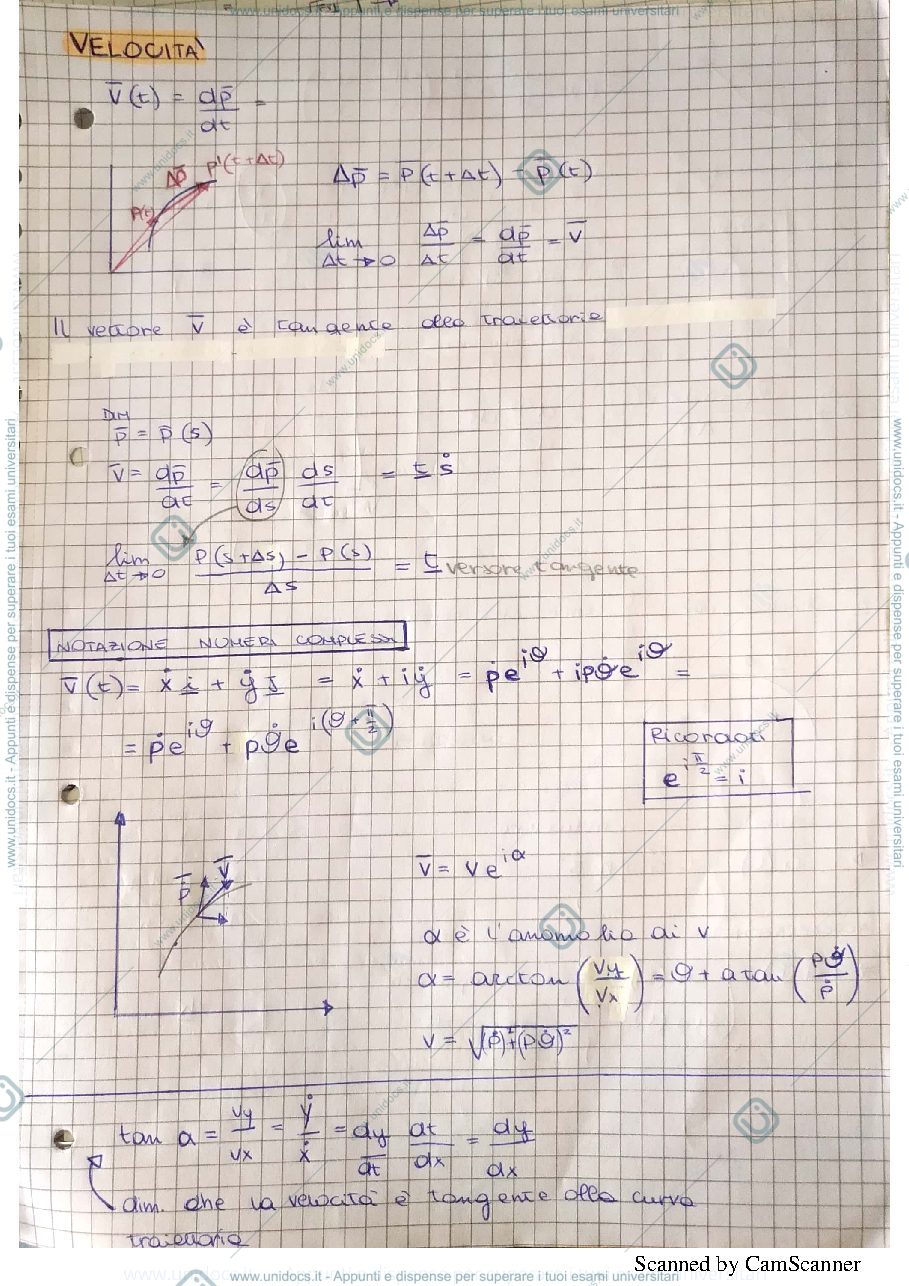 www.unidocs.it - Appunti e dispense per superare i tuoi esami universitari
VELOCITÀ
v̄(t) = dp̄/dt =
P(t) Δp̄ P'(t+Δt)
Δp̄ = P̄(t+Δt) - p̄(t)
lim Δt→0 Δp̄/Δt = dp̄/dt = v̄
Il vettore v̄ è tangente alla traiettoria
DIM
p̄ = p̄(s)
v̄ = dp̄/dt = dp̄/ds ds/dt = t ṡ
lim Δt→0 P(s+Δs) - P(s) / Δs = t versore tangente
NOTAZIONE NUMERI COMPLESSI
v̄(t) = ẋ i + ẏ j = ẋ + iẏ = ṗe^{iϑ} + ipϑ̇e^{iϑ} =
= ṗe^{iϑ} + pϑ̇e^{i(ϑ+π/2)}
Ricordati
e^{iπ/2} = i
p̄ v̄
v̄ = ve^{iα}
α è l'anomalia di v
α = arctan (vy/vx) = ϑ + atan (pϑ̇/ṗ)
v = √(ṗ)²+(pϑ̇)²
tan a = vy/vx = ẏ/ẋ = dy/dt dt/dx = dy/dx
dim. che la velocità è tangente alla curva
traiettoria
Scanned by CamScanner
www.unidocs.it - Appunti e dispense per superare i tuoi esami universitari